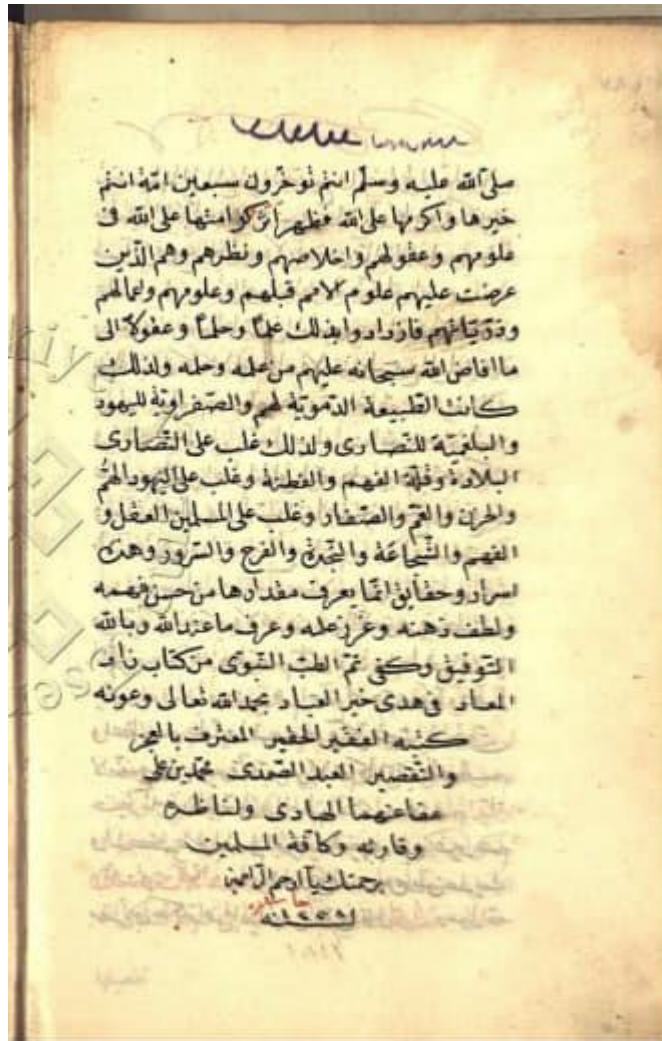 صلى الله عليه وسلم انتم توخرون سبعين امة انتم
خيرها واكرمها على الله فظهر اثر كرامتها على الله فى
علومهم وعقولهم واخلاصهم ونظرهم وهم الذين
عرضت عليهم علوم الامم قبلهم وعلومهم واعمالهم
ودرياتهم فازدادوا بذلك علماً وحلماً وعقولاً الى
ما افاض الله سبحانه عليهم من علمه وحلمه ولذلك
كانت الطبيعة الدموية لهم والصفراوية لليهود
والبلغمية للنصارى ولذلك غلب على النصارى
البلادة وقلة الفهم والفطنة وغلب على اليهود الهم
والحزن والغم والصغار وغلب على المسلمين العقل و
الفهم والشجاعة والنجدة والفرح والسرور وهذه
اسرار وحقايق انما يعرف مقدارها من حسن فهمه
ولطف ذهنه وغزر علمه وعرف ما عند الله وبالله
التوفيق وكفى تم الطب النبوى من كتاب زاد
المعاد فى هدى خير العباد بحمد الله تعالى وعونه
كتبه الفقير الحقير المعترف بالعجز
والتقصير العبد الصمدى محمد بن على
عفا عنهما الهادى ولناظره
وقارئه وكافة المسلمين
برحمتك يا ارحم الراحمين